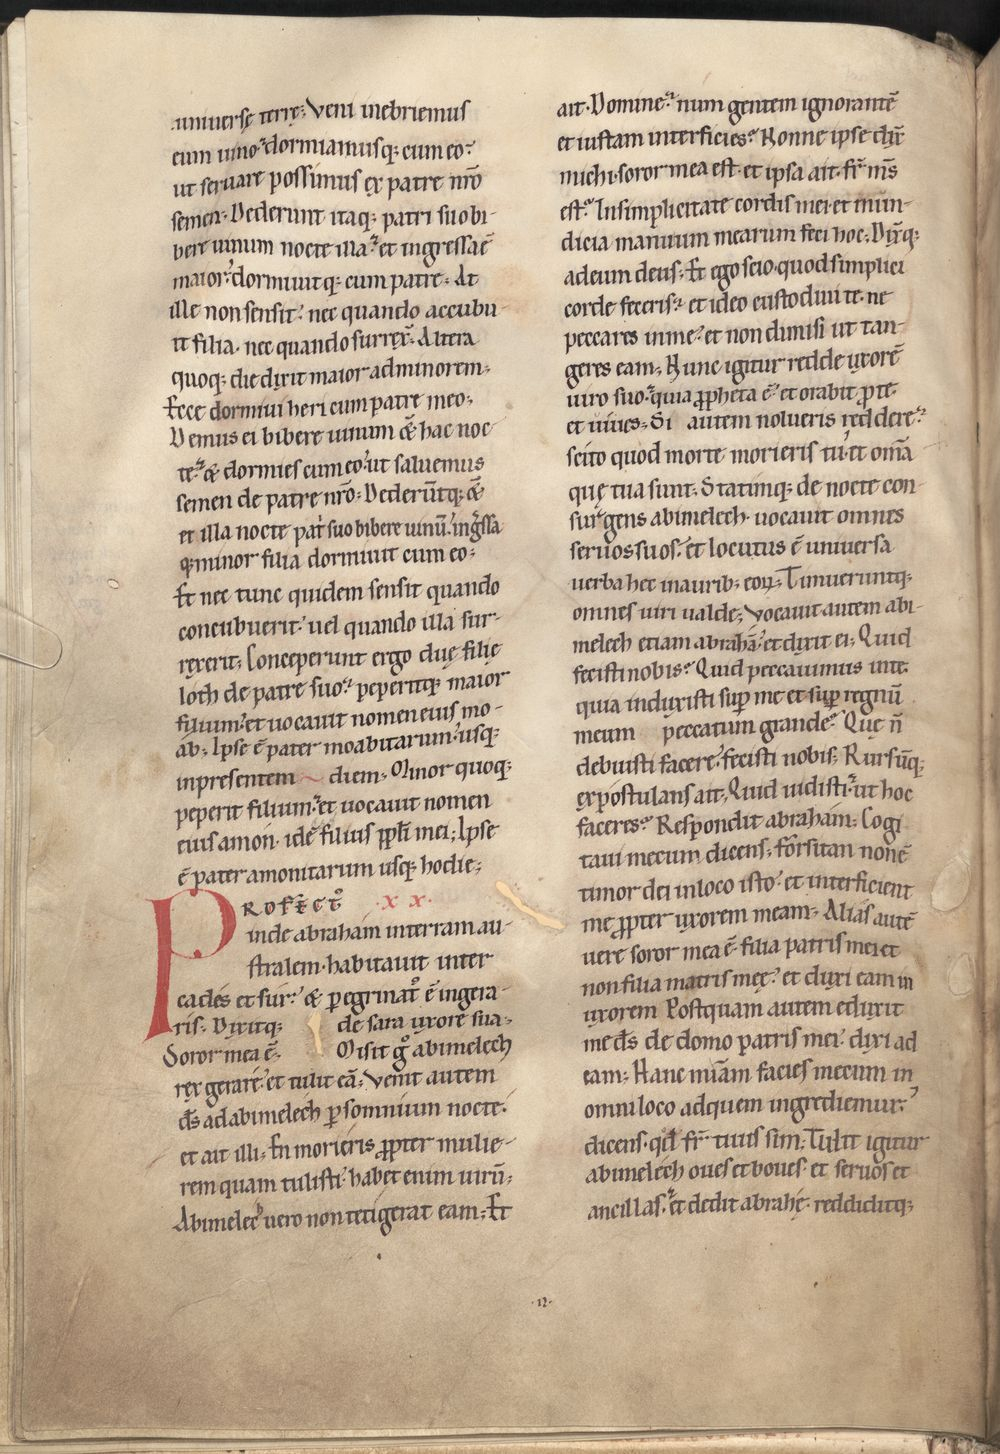 universę terrę; Veni inebriemus
eum uino. dormiamusq; cum eo.
ut seruare possimus ex patre nr̄o
semen. Dederunt itaq; patri suo bi-
bere uinum nocte illa. et ingressa ē
maior. dormiuitq; cum patre. At
ille non sensit. nec quando accubu-
it filia. nec quando surrex̄. Altera
quoq; die dixit maior ad minorem.
Ecce dormiui heri cum patre meo.
Demus ei bibere uinum & hac noc-
te. & dormies cum eo. ut saluemus
semen de patre nr̄o. Dederūtq; &
et illa nocte patri suo bibere uinū. inḡssa
q; minor filia dormiuit cum eo.
Et nec tunc quidem sensit quando
concubuerit. uel quando illa sur-
rexerit; Conceperunt ergo duę filię
loth de patre suo. peperitq; maior
filium. et uocauit nomen eius mo-
ab. Ipse ē pater moabitarum. usq;
inpresentem diem. Minor quoq;
peperit filium. et uocauit nomen
eius amon. idē filius pp̄li mei; Ipse
ē pater amonitarum usq; hodie;
PROFECT᷒ ·xx·
inde abraham interram au-
stralem. habitauit inter
cades et sur. & peregrinat᷒ ē ingera-
ris. Dixitq; de sara uxore sua.
Soror mea ē. Misit gͦ abimelech
rex gerarę. et tulit eā. Venit autem
ds̄ adabimelech p̱ somnium nocte.
et ait illi. En morieris ꝓpter mulie-
rem quam tulisti. habet enim uirū.
Abimelech uero non tetigerat eam. Et
ait. Domine. num gentem ignorantē
et iustam interficies. Nonne ipse dix̄
michi. soror mea est. et ipsa ait. fr̄ m̄s
est. In simplicitate cordis mei et mun-
dicia manuum mearum feci hoc. Dix̄q;
ad eum deus. Et ego scio. quod simplici
corde feceris. et ideo custodiui te. ne
peccares in me. et non dimisi ut tan-
geres eam. Nunc igitur redde uxorē
uiro suo. quia ꝓpheta ē. et orabit ꝓ te.
et uiues. Si autem nolueris reddere.
scito quod morte morieris tu. et om̄a
quę tua sunt. Statimq; de nocte con-
surgens abimelech. uocauit omnes
seruos suos. et locutus ē uniuersa
uerba hec in aurib; eoꝝ. Timueruntq;
omnes uiri ualde; Vocauit autem abi-
melech etiam abrahā. et dixit ei. Quid
fecisti nobis. Quid peccauimus inte.
quia induxisti sup̱ me et sup̱ regnū
meum peccatum grande. Quę n̄
debuisti facere. fecisti nobis. Rursūq;
expostulans ait. Quid uidisti. ut hoc
faceres. Respondit abraham. Cogi
taui mecum dicens. forsitan non ē
timor dei in loco isto. et interficient
me ꝓpter uxorem meam. Alias autē
uere soror mea ē. filia patris mei et
non filia matris meę. et duxi eam in
uxorem Postquam autem eduxit
me ds̄ de domo patris mei. dixi ad
eam. Hanc mīam facies mecum in
omni loco adquem ingrediemur.
dicens. qd̄ fr̄ tuus sim. Tulit igitur
abimelech oues et boues. et seruos et
ancillas. et dedit abrahę. reddiditq;
·12·